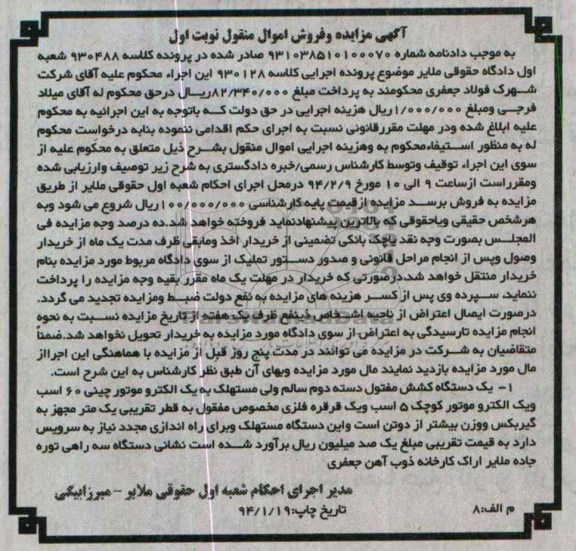 آگهی مزایده وفروش اموال منقول نوبت اول
به موجب دادنامه شماره 931038510100070 صادر شده در پرونده کلاسه 930488 شعبه
اول دادگاه حقوقی ملایر موضوع پرونده اجرایی کلاسه 930128 این اجراء محکوم علیه آقای شرکت
شهرک فولاد جعفری محکومند به پرداخت مبلغ 82/340/000ریال درحق محکوم له آقای میلاد
فرجی ومبلغ 1/000/000ریال هزینه اجرایی در حق دولت که باتوجه به این اجرائیه به محکوم
علیه ابلاغ شده ودر مهلت مقررقانونی نسبت به اجرای حکم اقدامی ننموده بنابه درخواست محکوم
له به منظور استیفاءمحکوم به وهزینه اجرایی اموال منقول بشرح ذیل متعلق به محکوم علیه از
سوی این اجراء توقیف وتوسط کارشناس رسمی/خبره دادگستری به شرح زیر توصیف وارزیابی شده
ومقرراست ازساعت 9 الی 10 مورخ 94/2/9 درمحل اجرای احکام شعبه اول حقوقی ملایر از طریق
مزایده به فروش برسد مزایده ازقیمت پایه کارشناسی 100/000/000ریال شروع می شود وبه
هرشخص حقیقی ویاحقوقی که بالاترین پیشنهادنماید فروخته خواهد شد.ده درصد وجه مزایده فی
المجلس بصورت وجه نقد یاچک بانکی تضمینی از خریدار اخذ ومابقی ظرف مدت یک ماه از خریدار
وصول وپس از انجام مراحل قانونی و صدور دستور تملیک از سوی دادگاه مربوط مورد مزایده بنام
خریدار منتقل خواهد شد.درصورتی که خریدار در مهلت یک ماه مقرر بقیه وجه مزایده را پرداخت
ننماید، سپرده وی پس از کسر هزینه های مزایده به نفع دولت ضبط ومزایده تجدید می گردد.
درصورت ایصال اعتراض از ناحیه اشخاص ذینفع ظرف یک هفته از تاریخ مزایده نسبت به نحوه
انجام مزایده تارسیدگی به اعتراض از سوی دادگاه مورد مزایده به خریدار تحویل نخواهد شد.ضمناً
متقاضیان به شرکت در مزایده می توانند در مدت پنج روز قبل از مزایده با هماهنگی این اجرااز
مال مورد مزایده بازدید نمایند مال مورد مزایده وبهای آن طبق نظر کارشناس به این شرح است.
1- یک دستگاه کشش مفتول دسته دوم سالم ولی مستهلک به یک الکترو موتور چینی 60 اسب
ویک الکترو موتور کوچک 5 اسب ویک قرقره فلزی مخصوص مفقول به قطر تقریبی یک متر مجهز به
گیربکس ووزن بیشتر از دوتن است واین دستگاه مستهلک وبرای راه اندازی مجدد نیاز به سرویس
دارد به قیمت تقریبی مبلغ یک صد میلیون ریال برآورد شده است نشانی دستگاه سه راهی توره
جاده ملایر اراک کارخانه ذوب آهن جعفری
مدیر اجرای احکام شعبه اول حقوقی ملایر – میرزابیگی
م الف:8 تاریخ چاپ:94/1/19